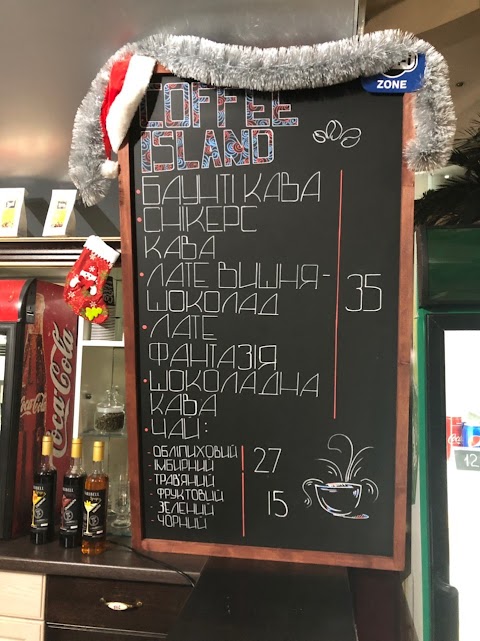 ZONE
COFFEE
ISLAND
• БАУНТІ КАВА
• СНІКЕРС
КАВА
• ЛАТЕ ВИШНЯ-
ШОКОЛАД
35
• ЛАТЕ
ФАНТАЗІЯ
• ШОКОЛАДНА
КАВА
• ЧАЙ:
- ОБЛІПИХОВИЙ
- ІМБИРНИЙ
27
- ТРАВ'ЯНИЙ
- ФРУКТОВИЙ
15
- ЗЕЛЕНИЙ
- ЧОРНИЙ
Coca-Cola
12